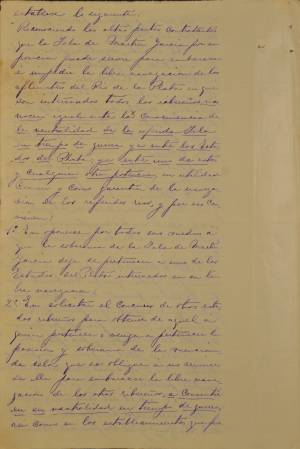 establece lo siguiente:
"Reconociendo las altas partes Contratantes
que la Isla de Martin Garcia por su
posicion puede servir para embarazar
é impedir la libre navegacion de los
afluentes del Rio de la Plata en que
son interesados todos los ribereños,
la neutralidad de la referida Isla
en tiempo de guerra ya entre los Esta-
dos del Plata, ya entre uno de estos
y cualquiera otra potencia, en utilidad
Comun y como garantia de la navega-
cion de los referidos rios, y por eso Con-
vienen:
1º En oponerse por todos sus medios á
que la soberania de la Isla de Martin
Garcia deje de pertenecer á uno de los
Estados del Plata interesados en su li-
bre navegacion;
2º En solicitar el Concurso de otros esta-
dos ribereños para obtener de aquel á
quien pertenece ó venga á pertenecer la
posesion y soberania de la mencionada
Isla, que se obligue á no servirse
de ella para embarazar la libre nave-
gacion de los otros ribereños, á consentir
en su neutralidad en tiempo de guerra,
asi como en los establecimientos que